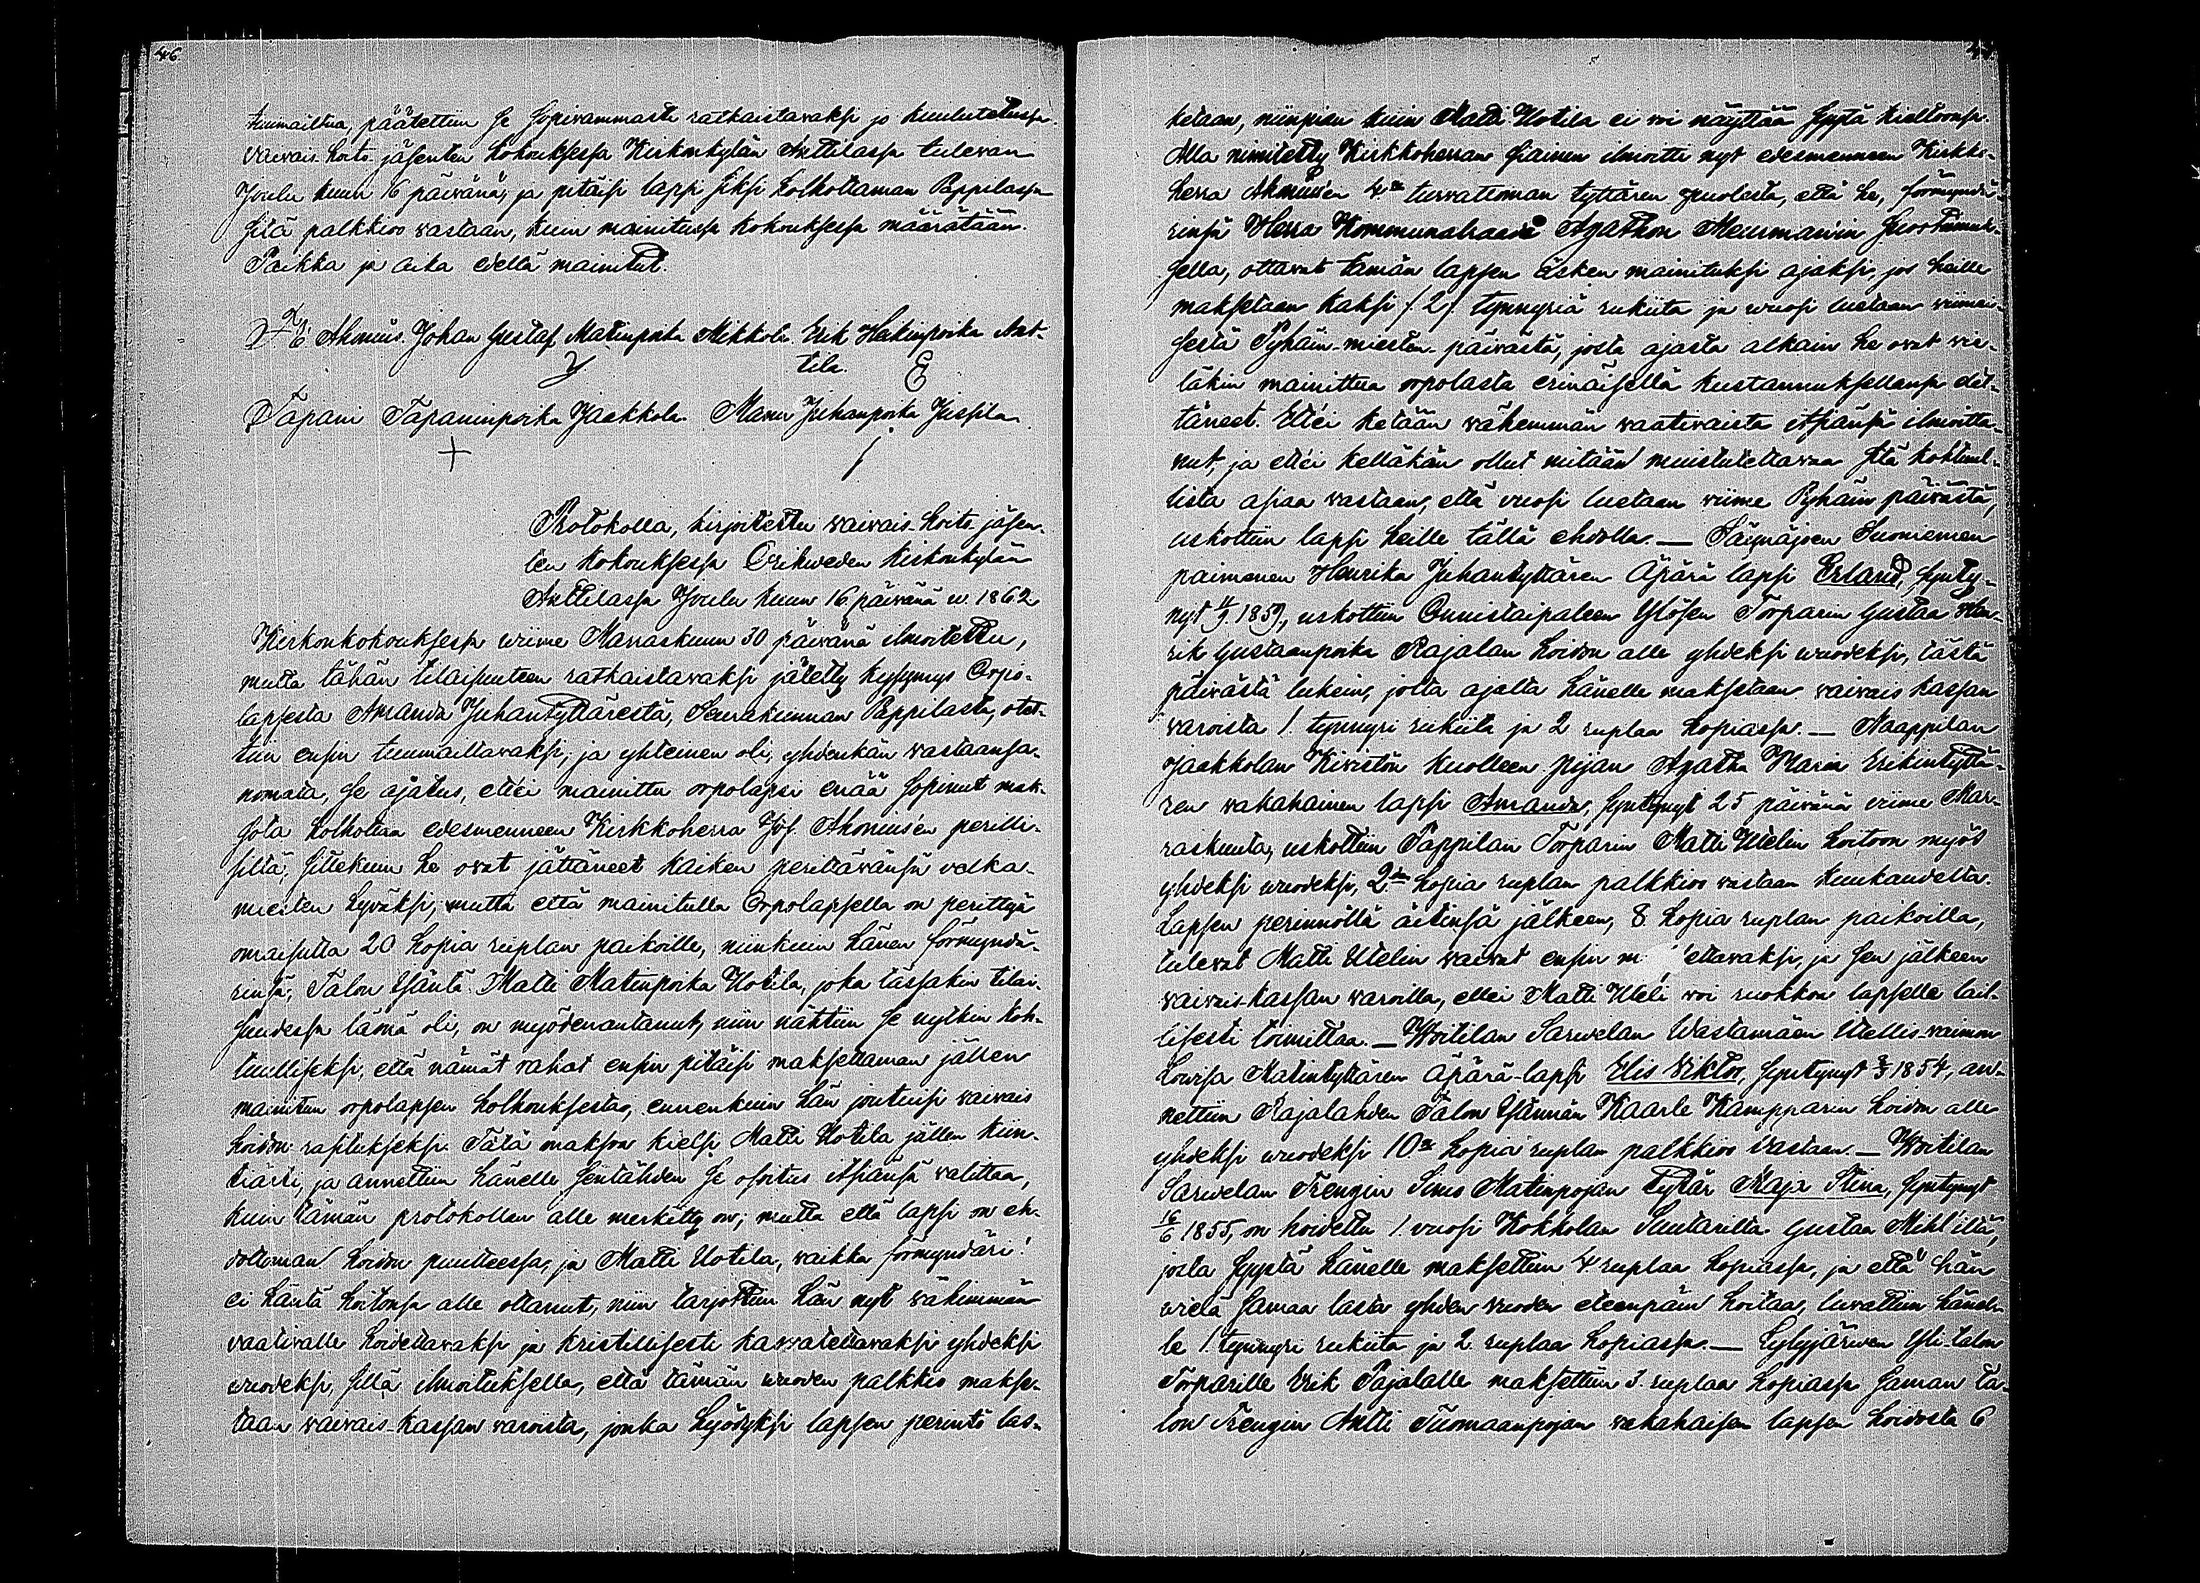 46
tuumailtua, päätettiin se sopivammasti ratkaistavaksi jo kuulutetussa
vaivais-hoito jäsenten kokouksessa Kirkonkylän Anttilassa tulevan
Joulu kuun 16 päivänä, ja pitäisi lapsi siksi holhottaman Pappilassa
sitä palkkioo vastaan, kuin mainitussa kokouksessa määrätään.
Paikka ja aika edellä mainitut.
Ahonius. Johan Gustaf Matinpoika Mikkola. Erik Heikinpoika Ant-
tila.
Tapani Tapaninpoika Jaakkola. Manu Juhanpoika Jussila
Protokolla, kirjoitettu vaivais-hoito jäsen-
ten kokouksessa Oriweden kirkonkylän
Anttilassa Joulu kuun 16 päivänä w. 1862
Kirkonkokouksessa wiime Marraskuun 30 päivänä ilmoitettu,
mutta tähän tilaisuuteen ratkaistavaksi jätetty kysymys Orpo-
lapsesta Amanda Juhantyttärestä, Seurakunnan Pappilasta, otet-
tiin ensin tuumailtavaksi, ja yhteinen oli, yhdenkän vastaansa-
nomata, se ajatus, ett'ei mainittu orpolapsi enää sopinut mak-
sota holhottaa edesmenneen Kirkkoherra Jos. Ahonius'en perilli-
siltä, sittekuin he ovat jättäneet kaiken perittävänsä velka-
miesten hyväksi, mutta että mainitulla Orpolapsella on perittyä
omaisutta 20 hopia ruplan paikoille, niinkuin hänen förmyndä-
rinsä, Talon Isäntä Matti Matinpoika Uotila, joka tässäkin tilai-
suudessa läsnä oli, on myödenantanut, niin nähtiin se nytkin koh-
tuulliseksi, että nämät rahat ensin pitäisi maksettaman jällen
mainitun orpolapsen holhouksesta, ennenkuin hän joutuisi vaivais
hoidon rasitukseksi. Tätä makson kielsi Matti Uotila jällen kiin-
tiästi, ja annettiin hänelle sentähden se osoitus Asiansa valittaa,
kuin tämän protokollan alle merkitty on; mutta että lapsi on eh-
dottoman hoidon puutteessa, ja Matti Uotila, vaikka förmyndäri!
ei häntä hoitonsa alle ottanut, niin tarjottiin hän nyt vähimmän
vaativalle hoidettavaksi ja kristillisesti kasvatettavaksi yhdeksi
vuodeksi, sillä ilmoituksella, että tämän wuoden palkkio makse-
taan vaivais-kassan varoista, jonka hyödyksi lapsen perintö las-
ketaan, niinpian kuin Matti Uotila ei voi näyttää syytä kieltoonsa.
Alla nimitetty Kirkkoherran siainen ilmoitti nyt edesmenneen Kirkko-
herra Ahonius'en 4:n turvattoman tyttären puolesta, että he, förmyndä-
rinsä Herra Kommunalraadi Agathon Meurman'in suostumuk-
sella, ottavat tämän lapsen äsken mainituksi ajaksi, jos heille
maksetaan kaksi /: 2 /: tynnyriä rukiita ja wuosi luetaan viimei-
sestä Pyhäin-miesten-päivästä, josta ajasta alkain he ovat vie-
läkin mainittua orpolasta erinäisellä kustannuksellansa elät-
täneet. Ett'ei ketään vähemmän vaativaista itsiänsä ilmoitta-
nut, ja ett'ei kelläkän ollut mitään muistutettavaa sitä kohtuul-
lista asiaa vastaan, että vuosi luetaan viime Pyhäin päivästä,
uskottiin lapsi heille tällä ehdolla. — Säynäjoen Suoniemen
paimenen Henrika Juhantyttären Äpärä lapsi Erland, synty-
nyt 1857, uskottiin Onnistaipaleen Ylösen Torparin Gustaa Hen-
rik Gustaanpoika Rajalan hoidon alle yhdeksi wuodeksi, tästä
päivästä lukein, jolta ajalta hänelle maksetaan vaivais kassan
varoista 1. tynnyri rukiita ja 2 ruplaa hopiassa. — Naappilan
Jaakkolan Kiviston kuolleen pijan Agatha Maria Erikintyttä-
ren vakahainen lapsi Amanda, syntynyt 25 päivänä viime Mar-
raskuuta, uskottiin Pappilan Torparin Matti Utelin hoitoon myös
yhdeksi wuodeksi, 2:n hopia ruplan palkkioo vastaan kuukaudelta.
Lapsen perinnöllä äitinsä jälkeen, 8 hopia ruplan paikoilla,
tulevat Matti Utelin vaivat ensin m ettavaksi, ja sen jälkeen
vaivais-kassan varoilla, ellei Matti Uteli voi ruokkoa lapselle lail-
lisesti toimittaa. — Woitilan Sarvelan Wastamäen Itellis-vaimon
Lovisa Matintyttären Äpärä-lapsi Elis Viktor, syntynyt 1854, an-
nettiin Rajalahden Talon Isännän Kaarle Kampparin hoidon alle
yhdeksi wuodeksi 10:n hopia ruplan palkkioo vastaan. — Woitilan
Sarvelan Rengin Simo Matinpojan tytär Maja Stina, syntynyt
16/6 1855, on hoidettu 1. vuosi Kokkolan Suutarilta Gustaa Mihl'iltä,
josta syystä hänelle maksettiin 4 ruplaa hopiassa, ja että hän
vielä samaa lasta yhden vuoden eteenpäin hoitaa, luvattiin hänel-
le 1. tynnyri rukiita ja 2 ruplaa hopiassa. — Lyhyjärven Yli-talon
Torparille Erik Pajalalle maksettiin 3 ruplaa hopiassa saman ta-
lon Rengin Antti Tuomaanpojan vakahaisen lapsen hoidosta 6